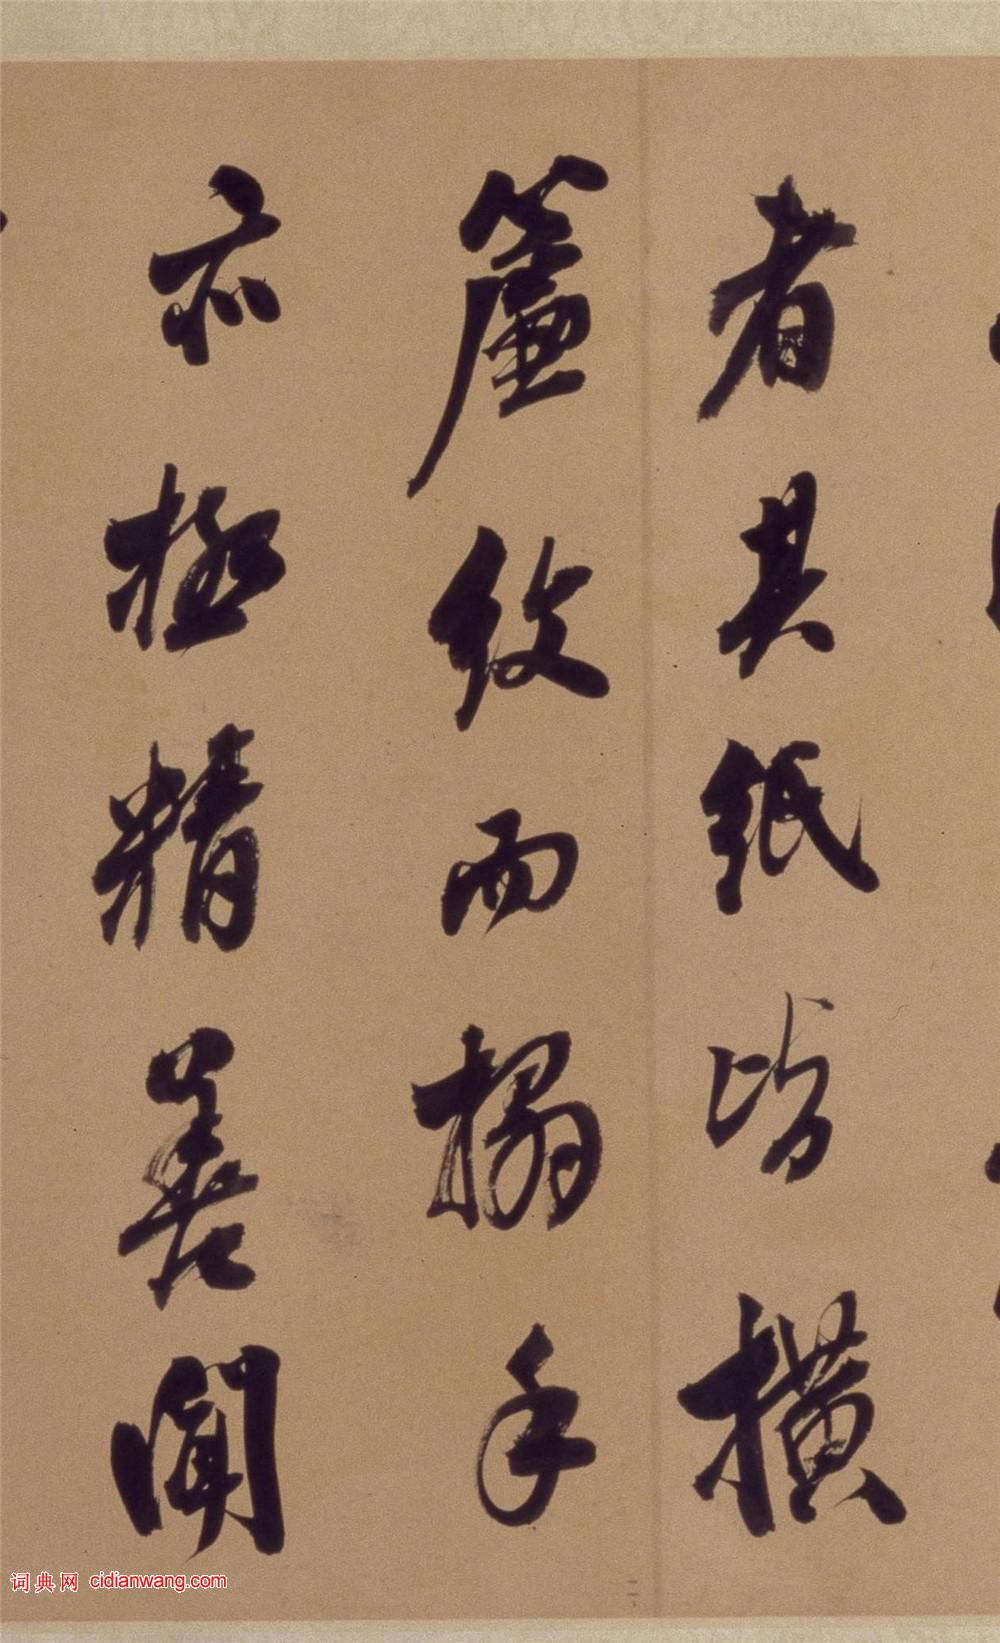 者其紙皆橫
簾紋而搨手
亦極精善聞
词典网 cidianwang.com